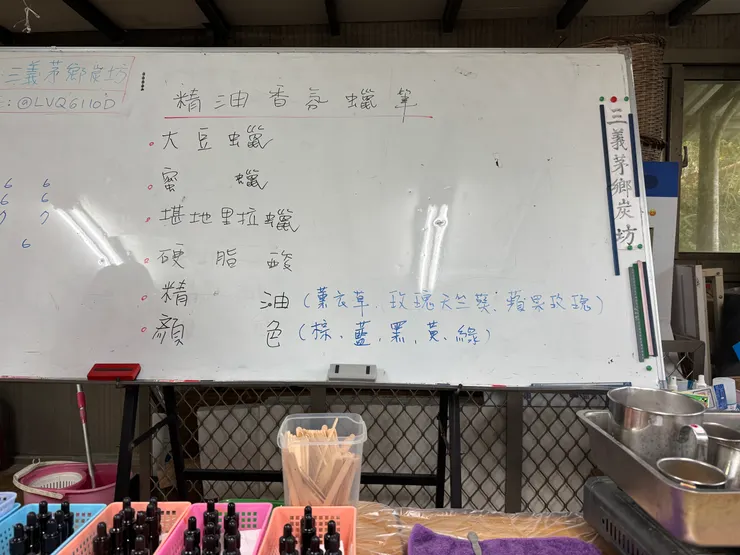 三義茅鄉炭坊
:@LVQ6110D
精油香氛蠟筆
大豆蠟
蜜蠟
堪地里拉蠟
硬脂酸
精油(薰衣草、玫瑰天竺葵、蘋果玫瑰)
顏色(棕、藍、黑、黃、綠)
6 6
6 6
7 7
6
三義茅鄉炭坊